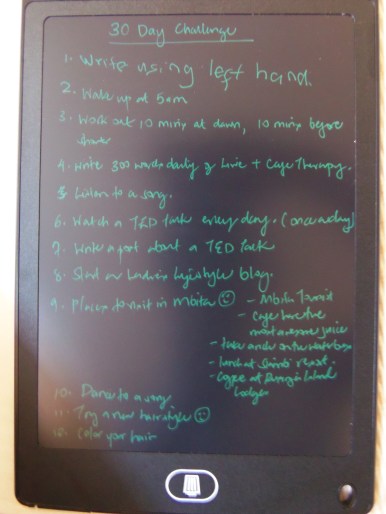 30 Day Challenge
1. Write using left hand.
2. Wake up at 5am
3. Work out 10 mins at dawn, 10 mins before
shower
4. Write 300 words daily of Love + Cage Therapy.
5. Listen to a song.
6. Watch a TED talk every day. (once a day)
7. Write a post about a TED talk
8. Start an lifestyle blog.
9. Places to visit in Mbita ☺ - Mbita Tourist
Cage have the
most awesome juice
- take a ride on the waterbus
- lunch at resort.
- coffee at Island
Lodge
10. Dance to a song
11. Try a new hairstyle ☺
12. Color your hair